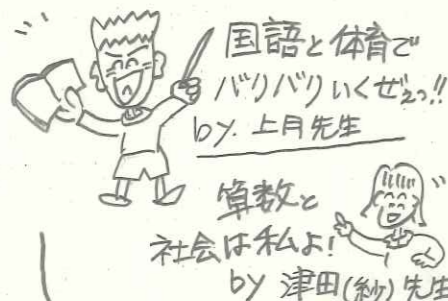 国語と体育で
バリバリいくぜぇっ!!
by. 上月先生
算数と
社会は私よ!
by 津田(紗)先生